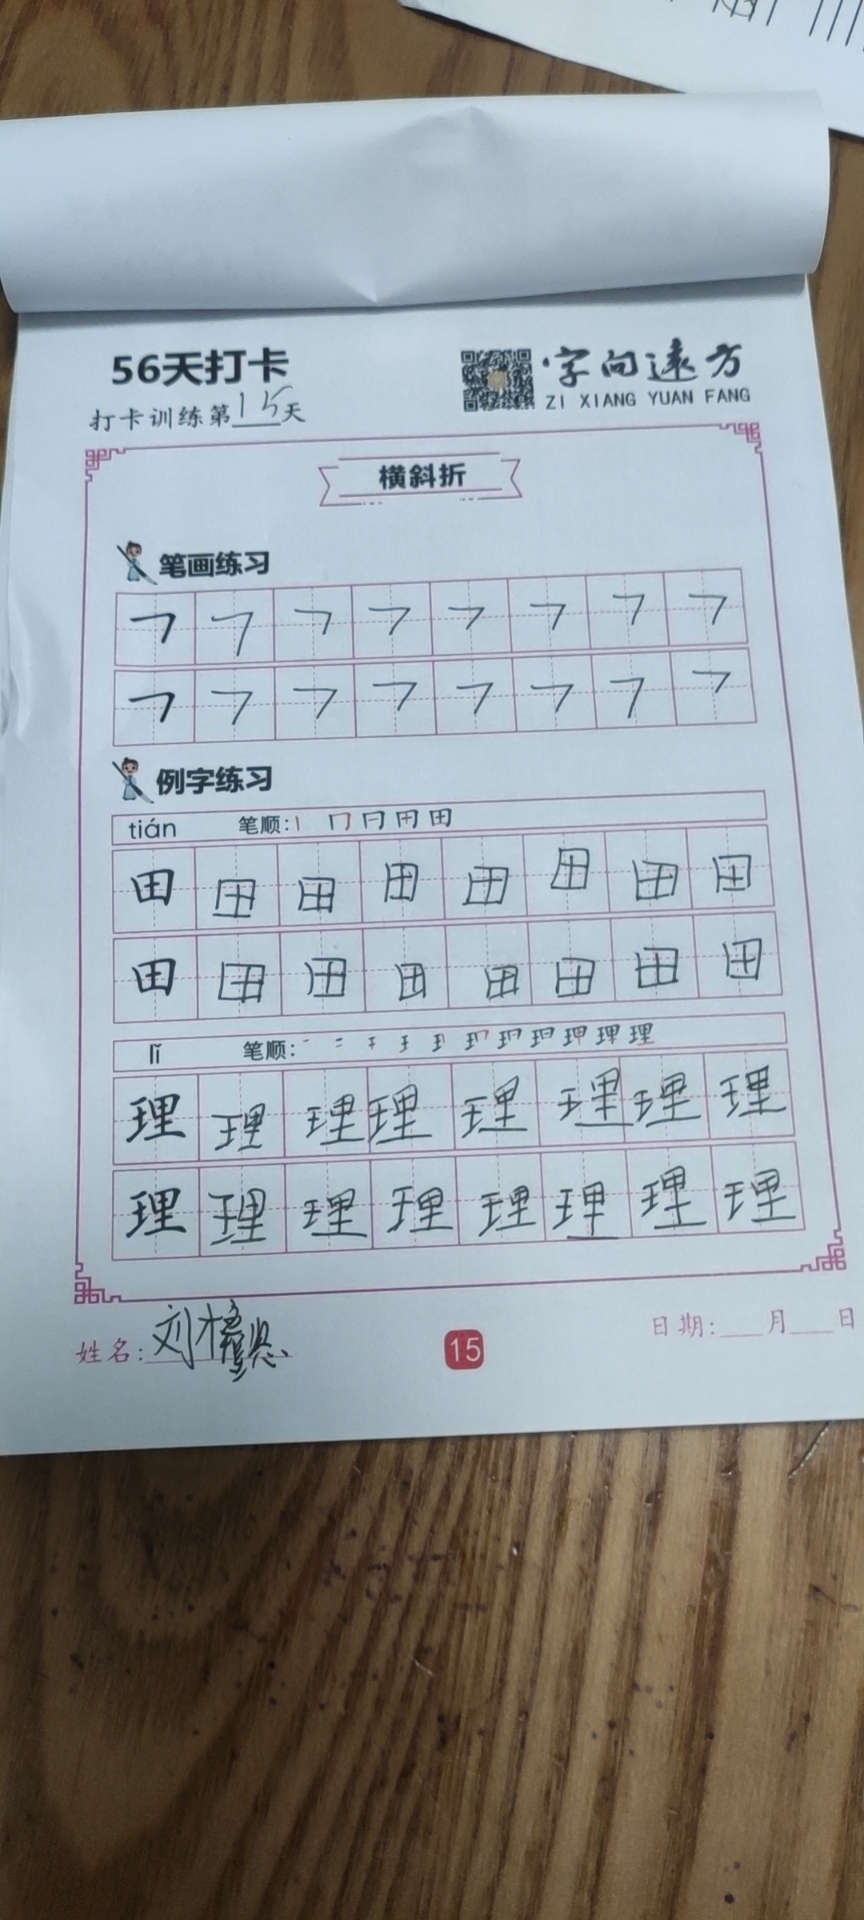 56天打卡
打卡训练第15天
字向远方
ZI XIANG YUAN FANG
横斜折
笔画练习
㇇ ㇇ ㇇ ㇇ ㇇ ㇇ ㇇ ㇇
㇇ ㇇ ㇇ ㇇ ㇇ ㇇ ㇇ ㇇
例字练习
tián 笔顺:丨 冂 日 田 田
田 田 田 田 田 田 田 田
田 田 田 田 田 田 田 田
lǐ 笔顺:
理 理 理 理 理 理 理 理
理 理 理 理 理 理 理 理
姓名:刘
15
日期:___月___日